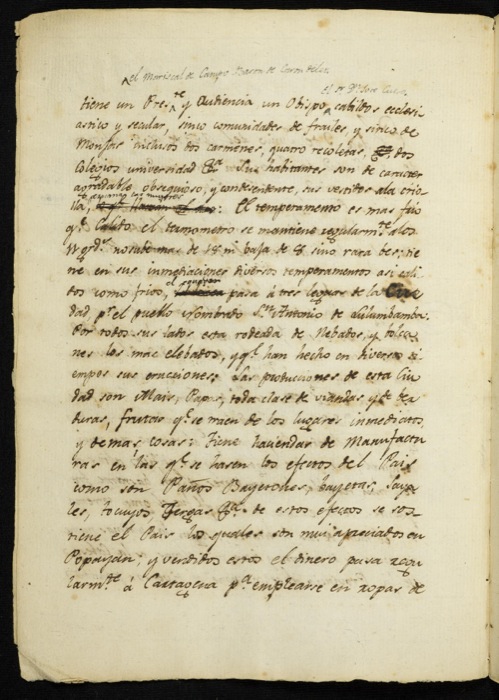 el Mariscal de Campo Baron de Carondelet
el Sr. Dn. Jose Cuer
tiene un Pre.te y Audiencia un Obispo, cabildos eclesi
astico y secular, sinco comunidades de frailes, y sinco de
Monjas inclusos dos carmenes, quatro recoletas, dos
Colegios universidad &a. Sus habitantes son de caracter
agradable obsequioso, y condesendente, sus vestidos ala crio
lla, : El temperamento es mas frio
q.e Calido el termometro se mantiene regularm.te alos
grd.s no sube mas de ni baja de 8 sino rara bes: tie
ne en sus inmediaciones diversos temperamentos asi cali
dos como frios, el pasa á tres leguas de la Ciu
dad, p.r el pueblo Nombrado Sn. Antonio de Lulumbamba.
Por todos sus lados esta rodeada de Nebados, y bolca
nes los mas elebados, y q.e han hecho en diversos ti
empos sus erucciones: Las producciones de esta Ciu
dad son Mais, Papas, toda clase de viandas y de ber
duras, frutas q.e se traen de los lugares inmediatos,
y demas cosas: tiene haciendas de Manufactu
ras en las q.e se hasen los efectos del Pais
como son Paños Bayetones, bayetas, Saya
les, tocuyos Jergas &a. de estos efectos se sos
tiene el Pais los quales son mui apreciados en
Popayan; y vendidos estos el dinero pasa regu
larm.te á Cartagena p.a emplearse en ropas de